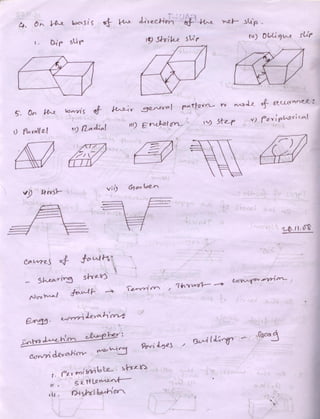 4. On the basis of the direction of the net slip.
i. Dip slip ii) Strike slip iii) Oblique slip
5. On the basis of their general pattern or mode of occurrence:
i) Parallel ii) Radial iii) Enchelon iv) Step v) Peripherical
vi) Horst vii) Graben
5.11.08
Causes of faults:
- Shearing stress
Normal fault → Tension, Thrust → compression.
Engg. considerations
Introduction chapter:
Consideration making Bridges, Buildings, Roads
i. Permissible stress
ii. Settlement
iii. Distribution